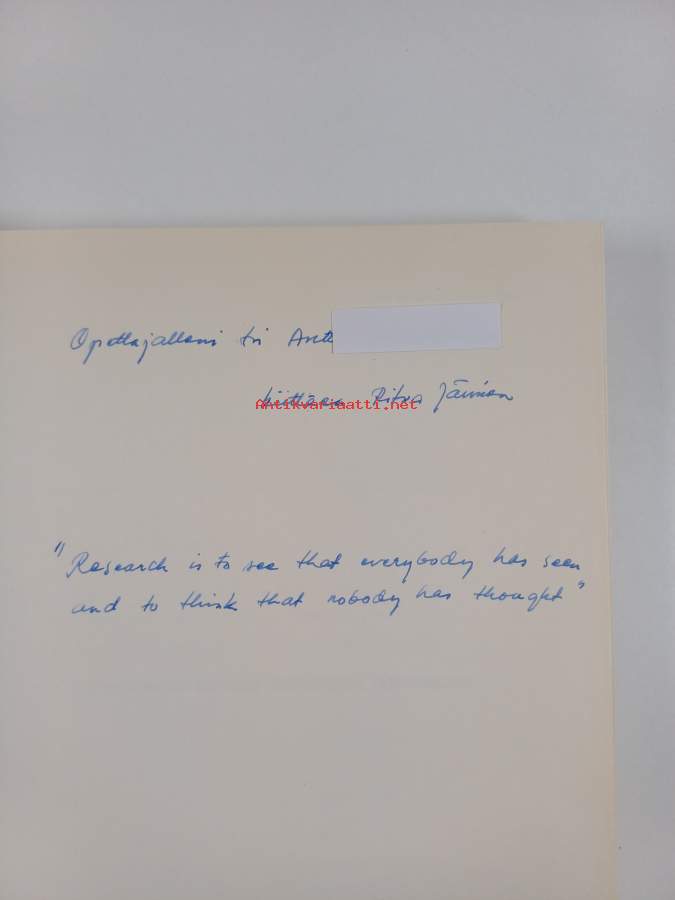 Opettajalleni tri Antt
kiittäen Ritva Järvinen
Antikvariaatti.net
"Research is to see that everybody has seen
and to think that nobody has thought"